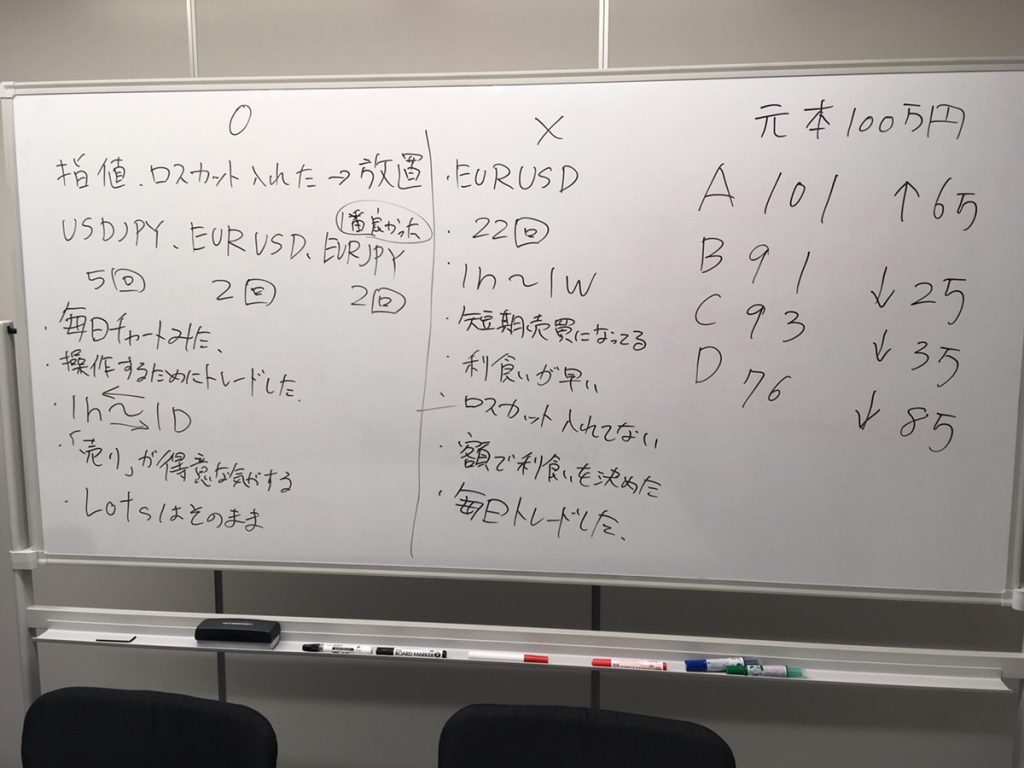 ○
指値、ロスカット入れた→放置
1番良かった
USDJPY、EURUSD、EURJPY
5回 2回 2回
・毎日チャートみた、
・操作するためにトレードした.
・1h～1D
・「売り」が得意な気がする
・Lotsはそのまま
×
・EURUSD
・22回
・1h～1W
・短期売買になってる
利食いが早い
・ロスカット入れてない
・額で利食いを決めた
・毎日トレードした、
元本100万円
A 101 ↑65
B 91 ↓25
C 93 ↓35
D 76 ↓85
BOARD MARKER